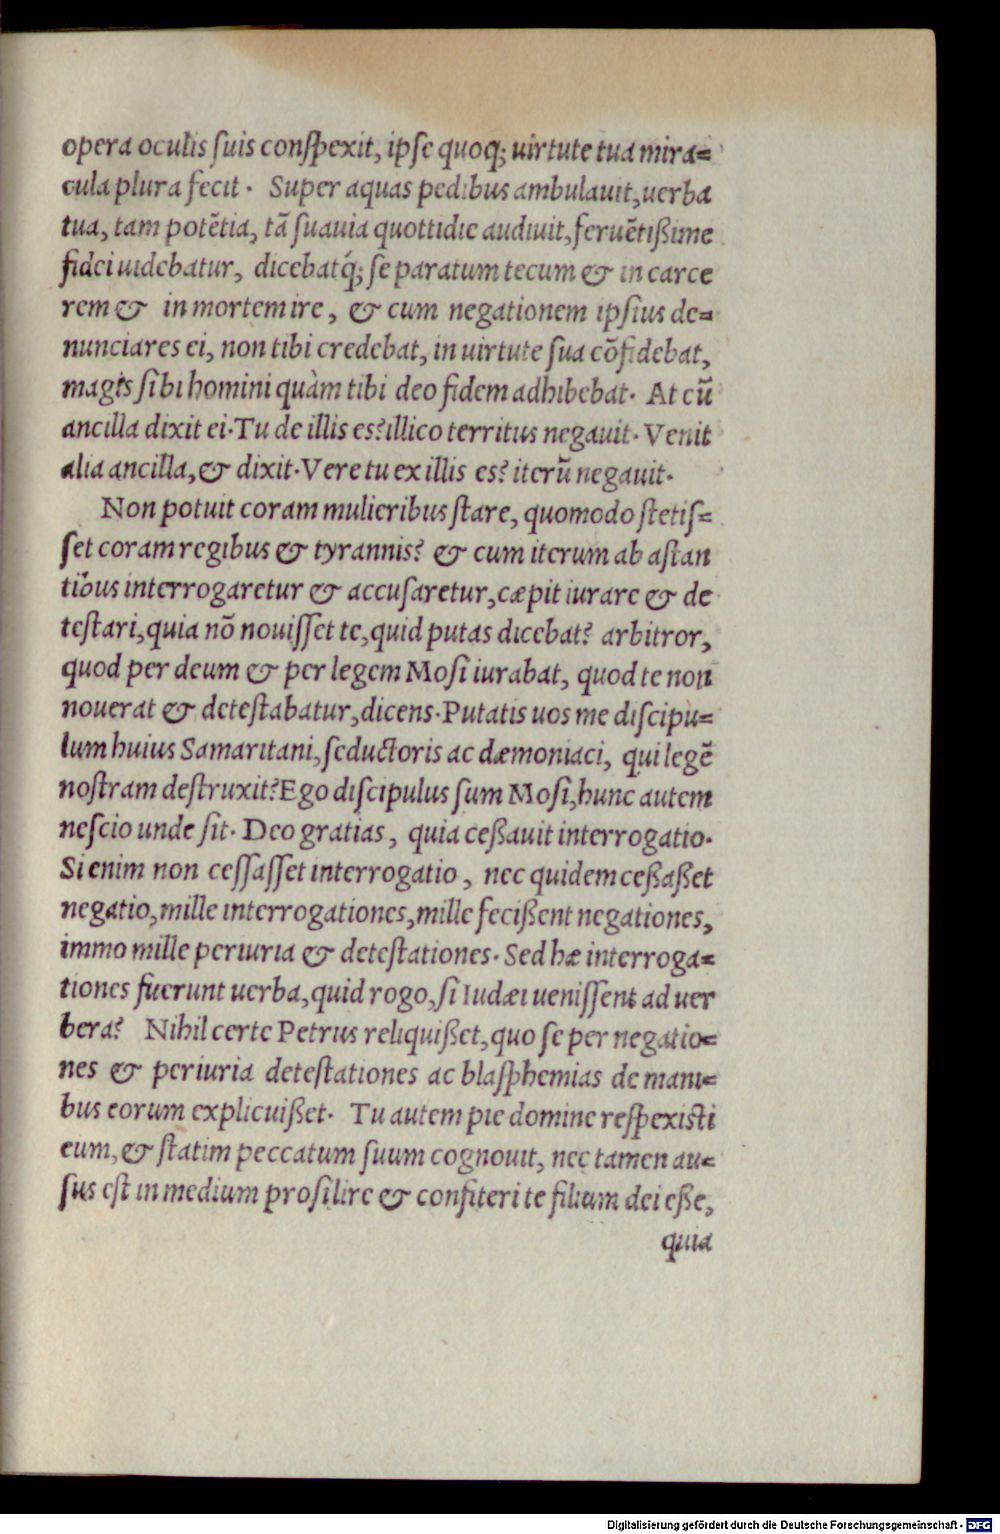 opera oculis ſuis conſpexit, ipſe quoq; uirtute tua mira=
cula plura fecit. Super aquas pedibus ambulauit, uerba
tua, tam potẽtia, tã ſuauia quottidie audiuit, feruẽtißime
fidei uidebatur, dicebatq́; ſe paratum tecum & in carce
rem & in mortem ire, & cum negationem ipſius de=
nunciares ei, non tibi credebat, in uirtute ſua cõfidebat,
magis ſibi homini quàm tibi deo fidem adhibebat. At cũ
ancilla dixit ei. Tu de illis es? illico territus negauit. Venit
alia ancilla, & dixit. Vere tu ex illis es? iterũ negauit.
Non potuit coram mulieribus ſtare, quomodo ſtetiſ=
ſet coram regibus & tyrannis? & cum iterum ab aſtan
tibus interrogaretur & accuſaretur, cæpit iurare & de
teſtari, quia nõ nouiſſet te, quid putas dicebat? arbitror,
quod per deum & per legem Moſi iurabat, quod te non
nouerat & deteſtabatur, dicens. Putatis uos me diſcipu=
lum huius Samaritani, ſeductoris ac dæmoniaci, qui legẽ
noſtram deſtruxit? Ego diſcipulus ſum Moſi, hunc autem
neſcio unde ſit. Deo gratias, quia ceßauit interrogatio.
Si enim non ceſſaſſet interrogatio, nec quidem ceßaßet
negatio, mille interrogationes, mille fecißent negationes,
immo mille periuria & deteſtationes. Sed hæ interroga=
tiones fuerunt uerba, quid rogo, ſi Iudæi ueniſſent ad uer
bera? Nihil certe Petrus reliquißet, quo ſe per negatio=
nes & periuria deteſtationes ac blaſphemias de mani=
bus eorum explicuißet. Tu autem pie domine reſpexisti
eum, & ſtatim peccatum ſuum cognouit, nec tamen au=
ſus eſt in medium proſilire & confiteri te filium dei eße,
quia
Digitalisierung gefördert durch die Deutsche Forschungsgemeinschaft - DFG